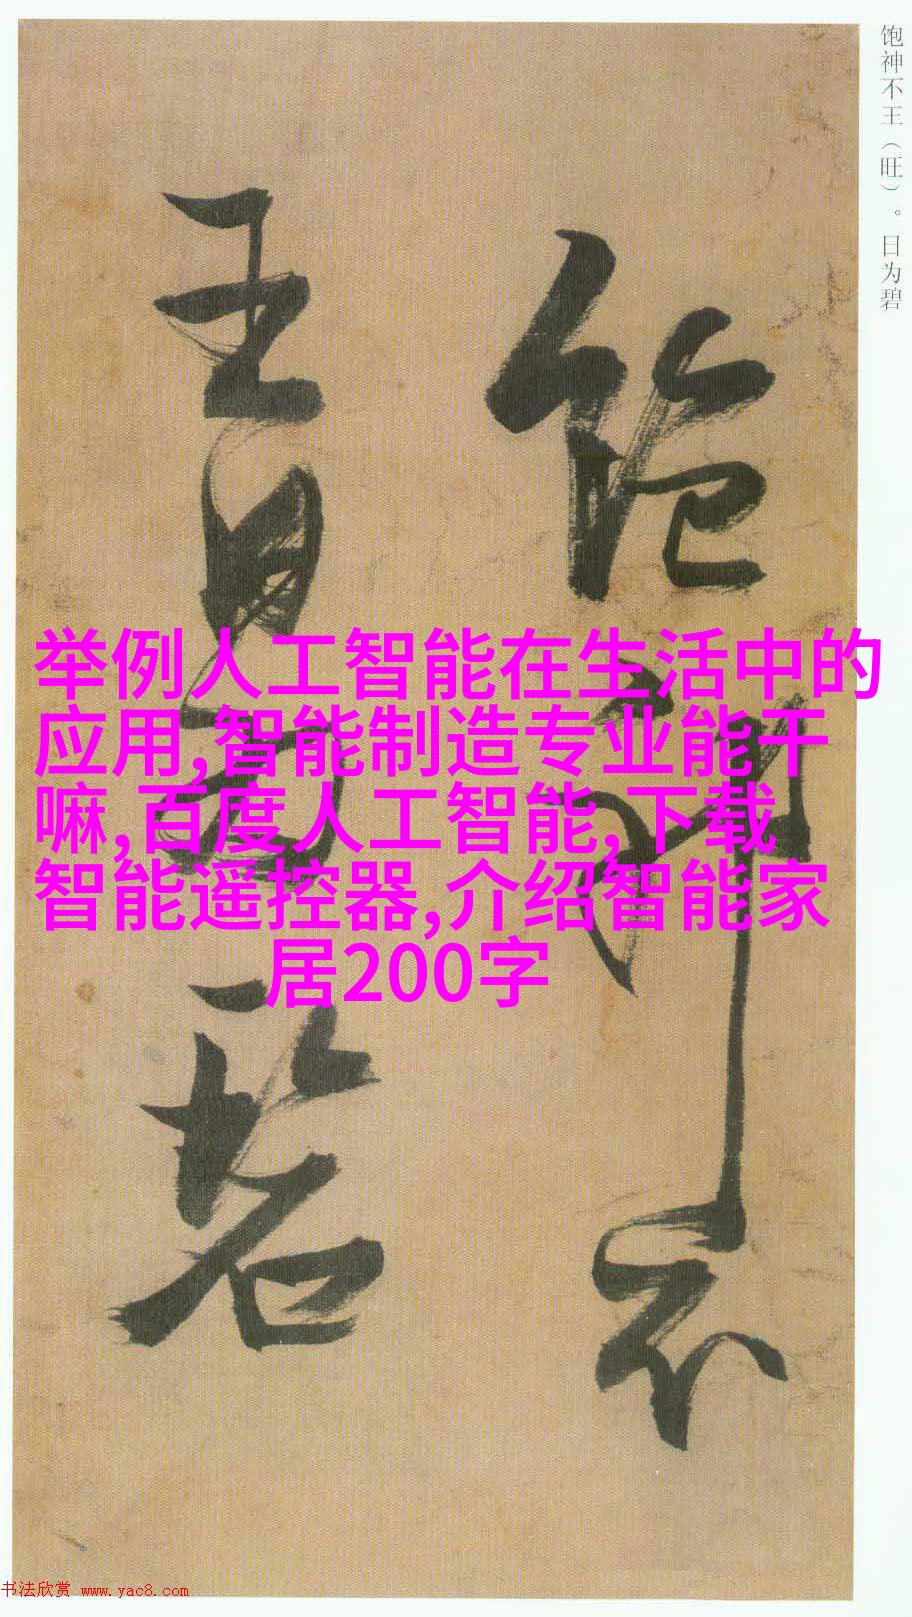 饱神不王（旺）。日为碧
饱神不
王日为碧
举例人工智能在生活中的
应用,智能制造专业能干
嘛,百度人工智能,下载
智能遥控器,介绍智能家
居200字
书法欣赏 www.yac8.com